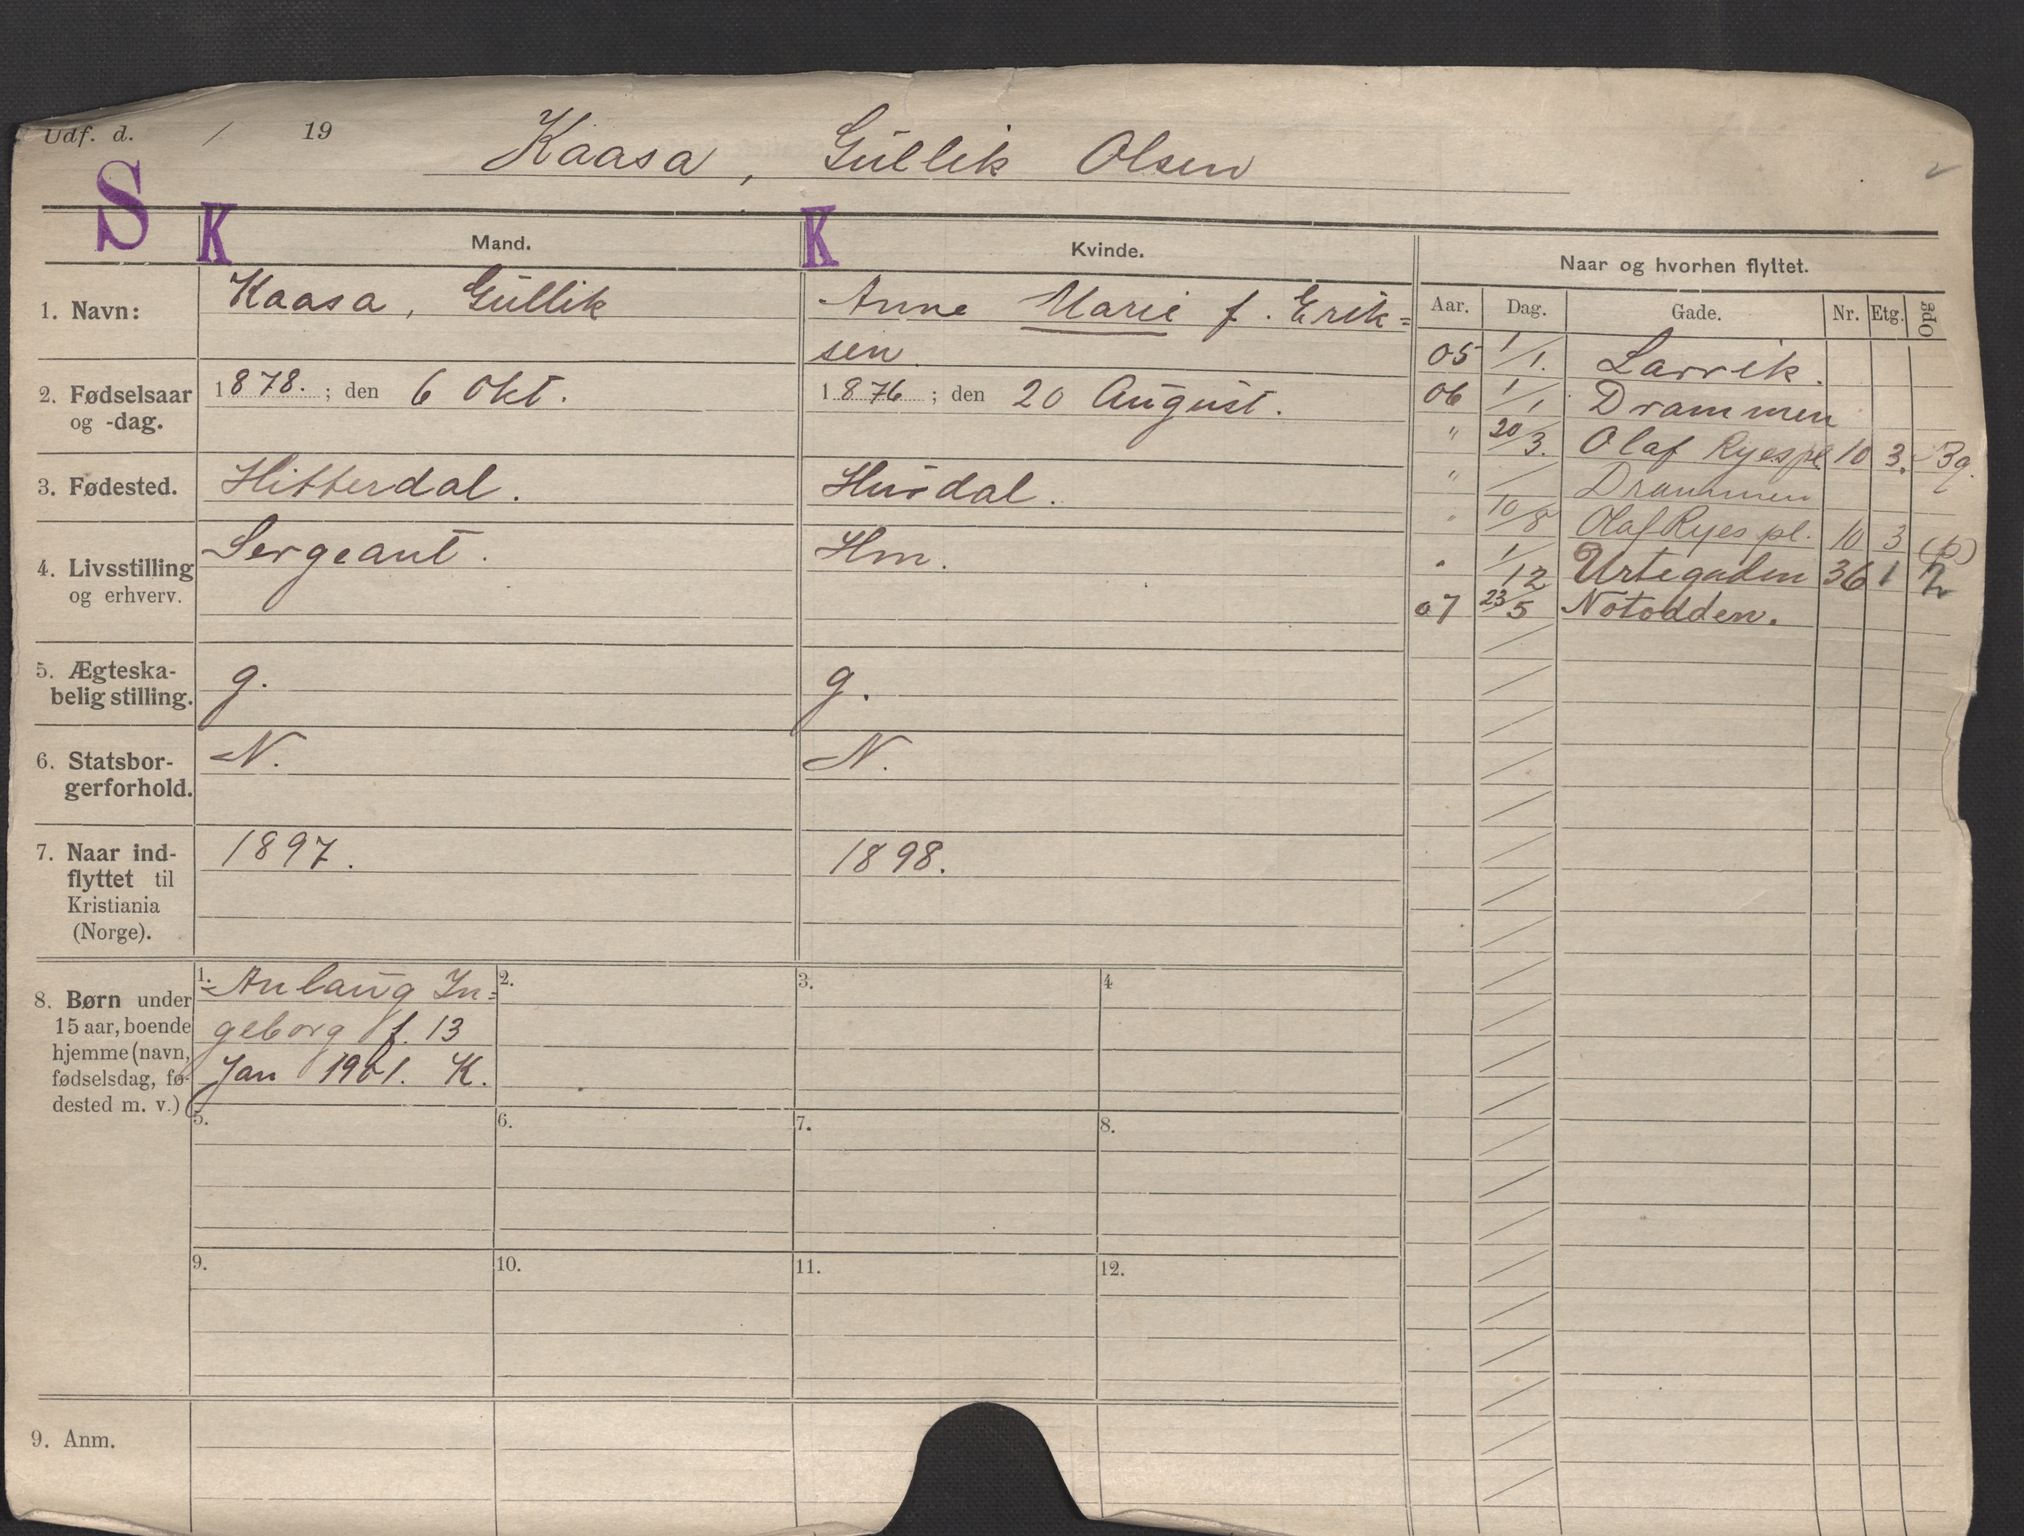 Udf. d. / 19
Kaasa, Gullik Olsen
S K K
Mand.
Kvinde.
Naar og hvorhen flyttet.
Aar. Dag. Gade. Nr. Etg. Opg
1. Navn:
Kaasa, Gullik
Anne Marie f. Erik=
sen.
2. Fødselsaar
og -dag.
1878. ; den 6 Okt.
1876 ; den 20 August.
3. Fødested.
Hitterdal.
Hurdal.
4. Livsstilling
og erhverv.
Sergeant.
Hm.
5. Ægteska-
belig stilling.
g.
g.
6. Statsbor-
gerforhold.
N.
N.
7. Naar ind-
flyttet til
Kristiania
(Norge).
1897.
1898.
05 1/1. Larvik.
06 1/1 Drammen
" 20/3. Olaf Ryespl. 10 3. 3g.
" / Drammen
" 10/8 Olaf Ryes pl. 10 3 (p)
" 1/12 Urtegaden 36 1 2
07 23/5 Notodden.
8. Børn under
15 aar, boende
hjemme (navn,
fødselsdag, fø-
dested m. v.)
1. Anlaug In=
geborg f. 13
Jan 1901. K.
2.
3.
4
5.
6.
7.
8.
9.
10.
11.
12.
9. Anm.